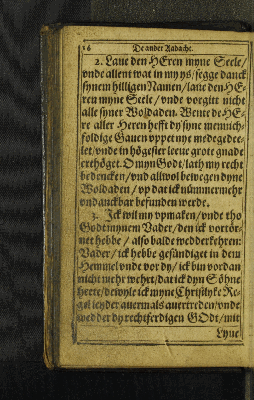 16 De ander Andacht.
2. Laue den HEren myne Seele/
vnde allent wat in my ys/ segge danck
synem hilligen Namen/ laue den HE-
ren myne Seele / vnde vorgitt nicht
alle syner Woldaden. Wente de HE-
re aller Heren hefft dy syne mennich-
foldige Gauen vppet nye medegedee-
let/ vnde in högester leeue grote gnade
ertöget. O myn Godt/ lath my recht
bedencken/ vnd allwol bewegen dyne
Woldaden / vp dat ick nümmermehr
vndanckbar befunden werde.
3. Ick wil my vpmaken/ vnde tho
Godt mynem Vader/ den ick vortör-
net hebbe / also balde wedderkehren:
Vader/ ick hebbe gesündiget in dem
Hemmel vnde vor dy/ ick bin vordan
nicht mehr wehrt/ dat ick dyn Söhne
heete/ dewyle ick myne Christlyke Re-
gel leyder auermals auertreden/ vnde
wedder dy rechtferdigen GOdt/ mit
Lyue